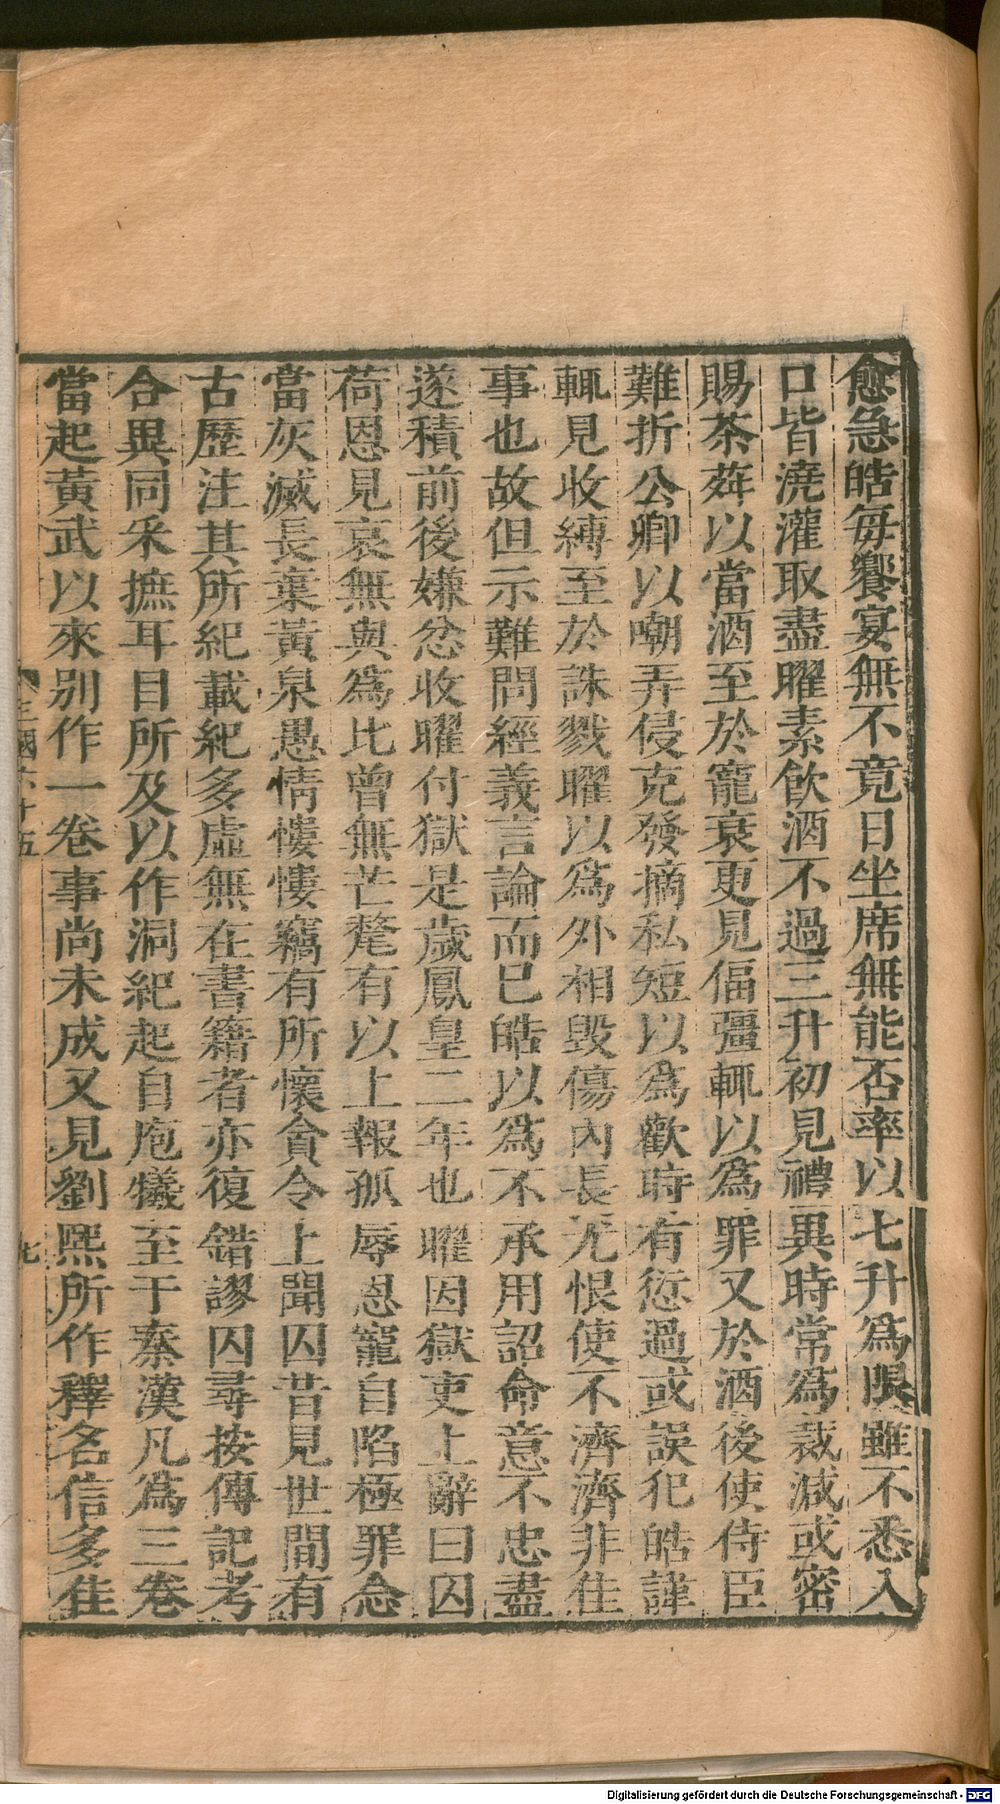 愈急皓每饗宴無不竟日坐席無能否率以七升爲限雖不悉入
口皆澆灌取盡曜素飲酒不過三升初見禮異時常爲裁減或密
賜茶荈以當酒至於寵衰更見偪彊輒以爲罪又於酒後使侍臣
難折公卿以嘲弄侵克發摘私短以爲歡時有愆過或誤犯皓諱
輒見收縛至於誅戮曜以爲外相毀傷內長尤恨使不濟濟非佳
事也故但示難問經義言論而已皓以爲不承用詔命意不忠盡
遂積前後嫌忿收曜付獄是歲鳳皇二年也曜因獄吏上辭曰囚
荷恩見哀無與爲比曾無芒氂有以上報孤辱恩寵自陷極罪念
當灰滅長棄黃泉愚情慺慺竊有所懷貪令上聞囚昔見世間有
古歷注其所紀載紀多虛無在書籍者亦復錯謬囚尋按傳記考
合異同采摭耳目所及以作洞紀起自庖犧至于秦漢凡爲三卷
當起黃武以來別作一卷事尚未成又見劉熙所作釋名信多佳
三國六十五
七
Digitalisierung gefördert durch die Deutsche Forschungsgemeinschaft - DFG